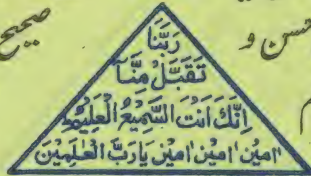 صحیح
حسن و
رَبَّنَا
تَقَبَّلْ مِنَّا
اِنَّكَ اَنْتَ السَّمِيْعُ الْعَلِيْمُ
اٰمِيْن اٰمِيْن اٰمِيْن يَارَبَّ الْعٰلَمِيْنَ